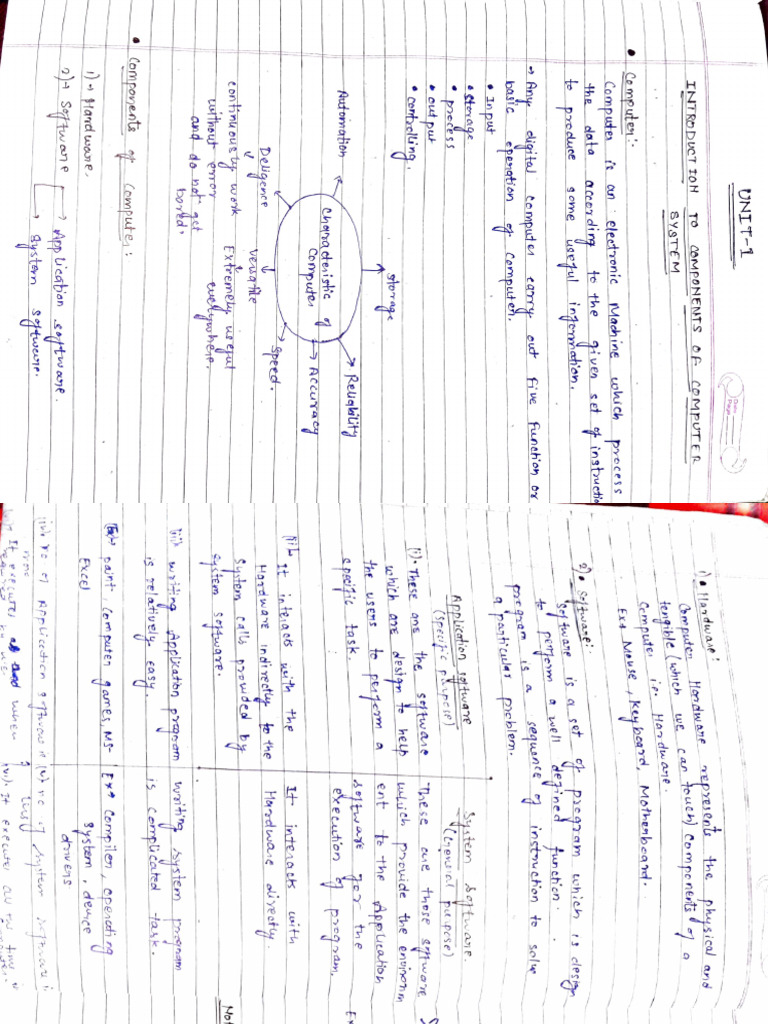 UNIT-1
INTRODUCTION TO COMPONENTS OF COMPUTER
SYSTEM
• Computer:-
Computer is an electronic Machine which process
the data according to the given set of instructio
to produce some useful information.
→ Any digital computer carry out five function or
basic operation of Computer.
• Input
• storage
• process
• output
• controlling.
storage
Automation
Reliability
Characteristic of
Computer
Accuracy
Deligence
versatile
Speed.
continuously work
without error
and do not get
bored.
Extremely useful
everywhere.
• Components of Computer:
1)→ Hardware.
2)→ Software
→ Application software.
→ System software.
1)• Hardware:
Computer Hardware represents the physical and
tengible (which we can touch) components of a
Computer i.e. Hardware.
Ex: Mouse, Keyboard, Motherboard.
2)• Software:
Software is a set of program which is design
to perform a well defined function.
program is a sequence of instruction to solve
a particular problem.
Application software
(specific purpose)
System Software.
(General purpose)
(i). These are the software
which are design to help
the users to perform a
specific task.
These are those software
which provide the environm
ent to the Application
software for the
execution of program.
It interacts with the
Hardware indirectly to the
System calls provided by
System software.
It interacts with
Hardware directly.
writing Application program
is relatively easy.
writing system program
is complicated task.
paint, Computer games, MS-
Excel
Ex: Compiler, operating
system, device
drivers
No. of Application software
No. of System software
It execute
when
It execute all the time
Not
Ex
S